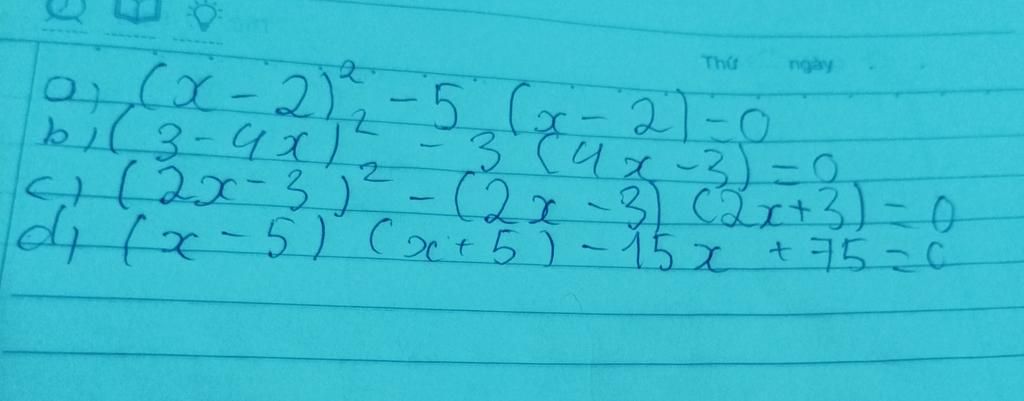 Thứ ngày
a, (x - 2)² - 5 (x - 2) = 0
b, (3 - 4x)² - 3 (4x - 3) = 0
c, (2x - 3)² - (2x - 3) (2x + 3) = 0
d, (x - 5) (x + 5) - 15x + 75 = 0